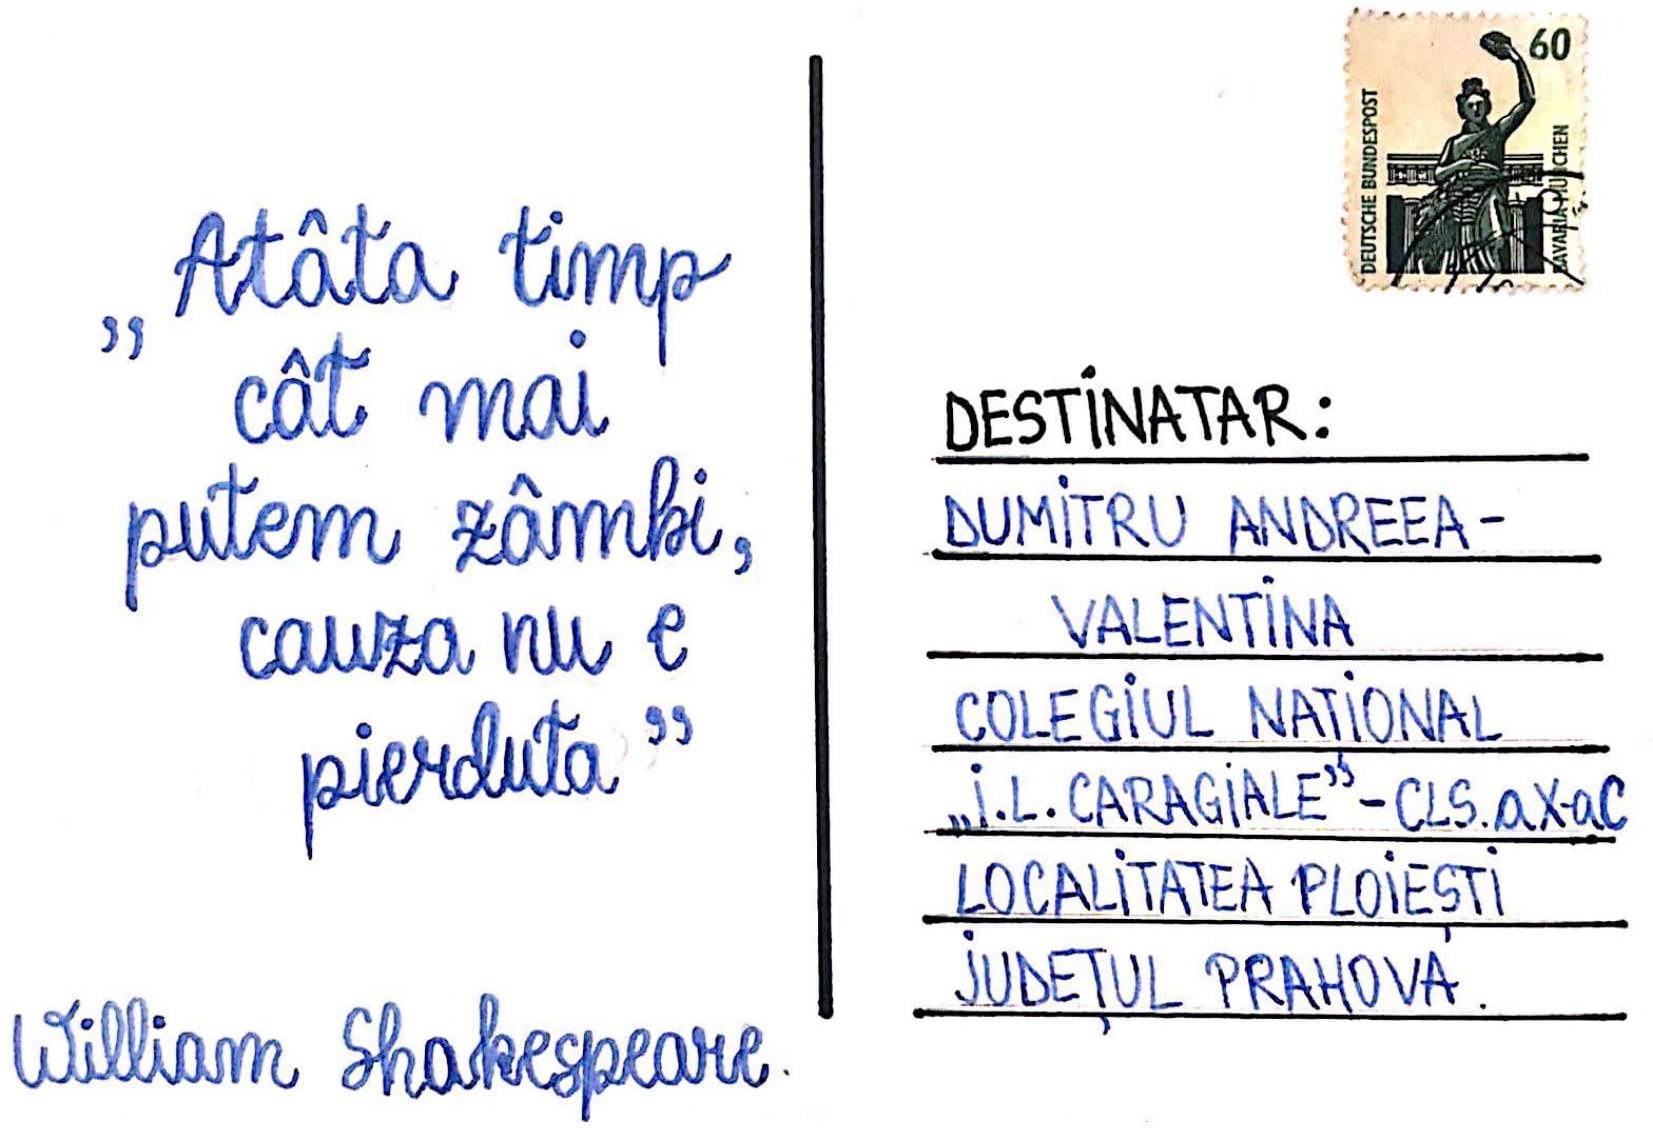 „Atâta timp
cât mai
putem zâmbi,
cauza nu e
pierduta”
William Shakespeare.
60
DEUTSCHE BUNDESPOST
BAVARIA MÜNCHEN
DESTINATAR:
DUMITRU ANDREEA-
VALENTINA
COLEGIUL NATIONAL
„I.L. CARAGIALE”-CLS. a X-a C
LOCALITATEA PLOIEȘTI
JUDEȚUL PRAHOVA.